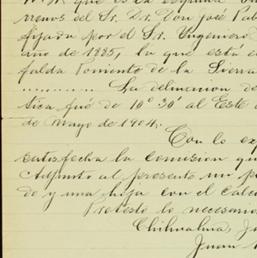 que es la
renos del Sr. Dr. Don José Pab
fijada por el Sr. Ingeniero
ano de 1885, la que está e
falda Poniente de la Sierra
......... La declinacion de
tica fué de 10° 30' al Este
de Mayo de 1904.
Con lo ex
satisfecha la comision qu
Adjunto al presente un p
do y una hija con el calc
Protesto lo necesario
Chihuahua, J
Juan